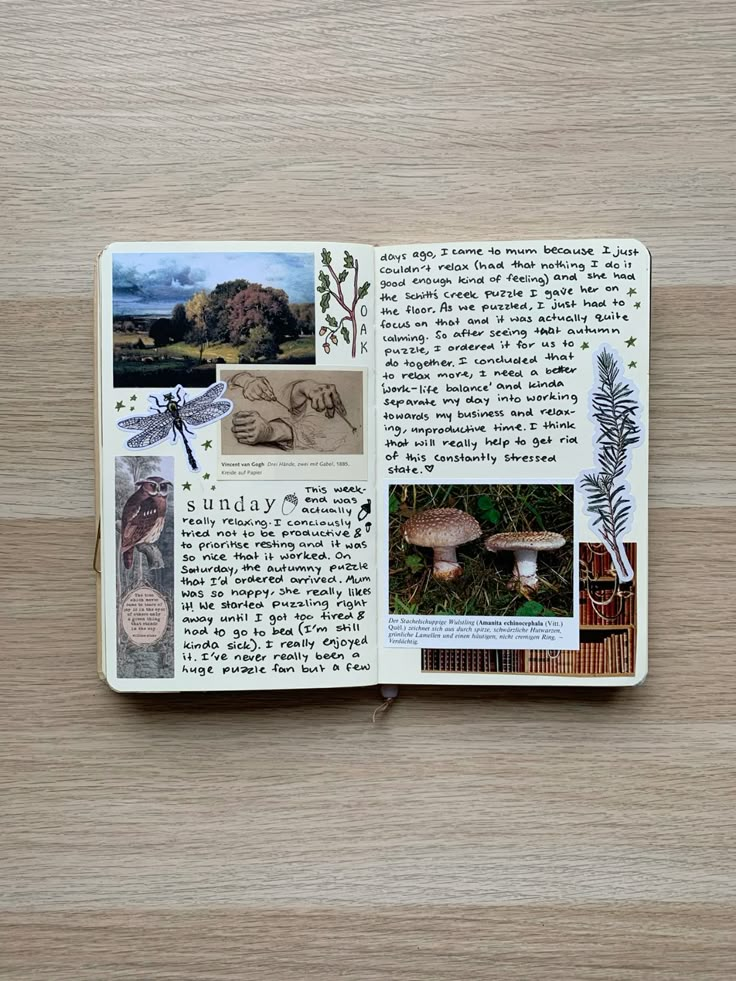 OAK
Vincent van Gogh Drei Hände, zwei mit Gabel, 1885,
Kreide auf Papier
sunday
This week-
end was
actually
really relaxing. I conciously
tried not to be productive &
to prioritise resting and it was
so nice that it worked. On
Saturday, the autumny puzzle
that I'd ordered arrived. Mum
was so happy, she really likes
it! We started puzzling right
away until I got too tired &
had to go to bed (I'm still
kinda sick). I really enjoyed
it. I've never really been a
huge puzzle fan but a few
The tree
which moves
some to tears of
joy is in the eyes
of others only
a green thing
that stands
in the way
days ago, I came to mum because I just
couldn't relax (had that nothing I do is
good enough kind of feeling) and she had
the Schitt's creek Puzzle I gave her on
the floor. As we puzzled, I just had to
focus on that and it was actually quite
calming. So after seeing that autumn
puzzle, I ordered it for us to
do together. I concluded that
to relax more, I need a better
'work-life balance' and kinda
separate my day into working
towards my business and relax-
ing, unproductive time. I think
that will really help to get rid
of this constantly stressed
state.♡
Der Stachelschuppige Wulstling (Amanita echinocephala (Vitt.)
Quél.) zeichnet sich aus durch spitze, schwärzliche Hutwarzen,
grünliche Lamellen und einen häutigen, nicht cremigen Ring. –
Verdächtig.